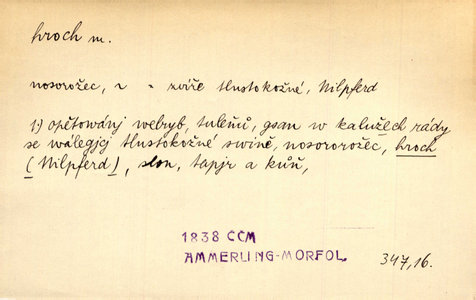 hroch m.
nosorožec, n " zvíře tlustokožné, Nilpferd
1.) opětowánj welryb, tuleňů, gsau w kalužech rády
se wálegjcj tlustokožné swině, nosororožec, hroch
(Nilpferd), slon, tapjr a kůň,
1838 ČČM
AMMERLING-MORFOL.
347,16.